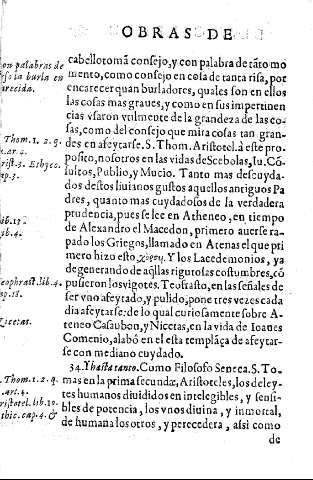 OBRAS DE
on palabras de
rsola burla en
arecida.
cabello tomā consejo, y con palabra de tāto mo
mento, como consejo en cosa de tanta risa, por
encarecer quan burladores, quales son en ellos
las cosas mas graues, y como en sus impertinen
cias vsaron vulmente de la grandeza de las co-
sas, como del consejo que mira cosas tan gran-
des en afeytarse. S. Thom. Aristot. â este pro-
posito, nosotros en las vidas de Sceuolas, Iu. Cō-
sultos, Publio, y Mucio. Tanto mas descuyda-
dos destos liuianos gustos aquellos antiguos Pa
dres, quanto mas cuydadosos de la verdadera
prudencia, pues se lee en Atheneo, en tiempo
de Alexandro el Macedon, primero auerse ra-
pado los Griegos, llamado en Atenas el que pri
mero hizo esto Y los Lacedemonios, ya
degenerando de aq̃llas rigurosas costumbres, cō
pusieron los vigotes. Teofrasto, en las señales de
ser vno afeytado, y pulido, pone tres vezes cada
dia afeytarse: de lo qual curiosamente sobre A-
teneo Casaubon, y Nicetas, en la vida de Ioanes
Comenio, alabô en el esta templāça de afeytar-
se con mediano cuydado.
Thom. 1. 2. q.
.ar. 4.
rist. 3. Ethyco.
ap. 3.
lib. 13.
ib. 4.
eophrast. lib. 4.
ap. 18.
Nicetas.
34. Y hasta tanto. Como Filosofo Seneca. S. To-
mas en la prima secundæ, Aristoteles, los deley-
tes humanos diuididos en intelegibles, y sensi-
bles de potencia, los vnos diuina, y inmortal,
de humana los otros, y perecedera, assi como
de
. Thom. 1. 2. q.
.art. 4.
ristotel. lib. 10.
thic. cap. 4. &